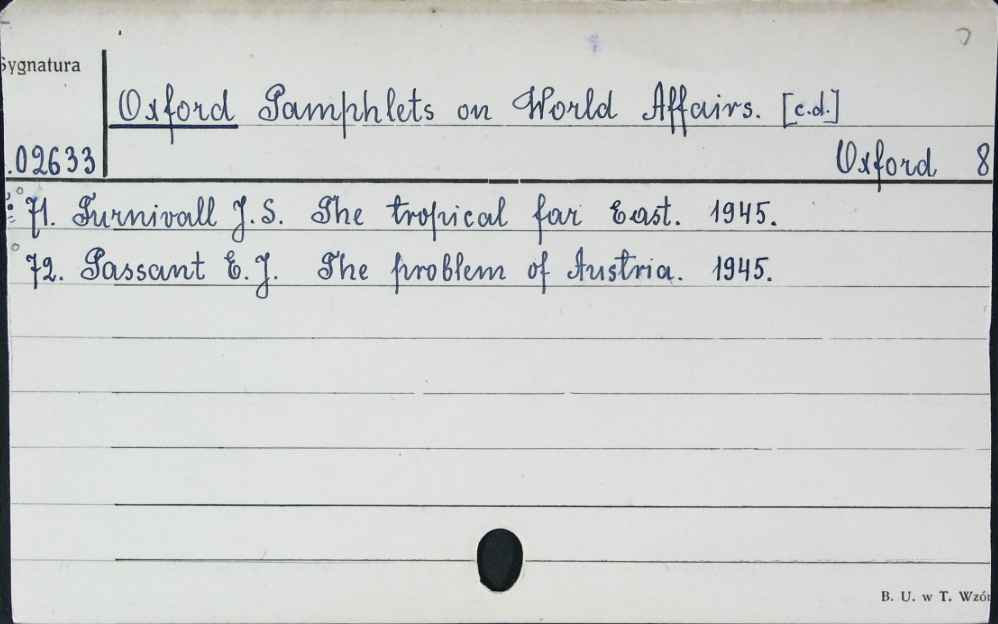 Sygnatura
Oxford Pamphlets on World Affairs. [c.d.]
.02633
Oxford 8
71. Furnivall J.S. The tropical far East. 1945.
72. Passant E.J. The problem of Austria. 1945.
B. U. w T. Wzór